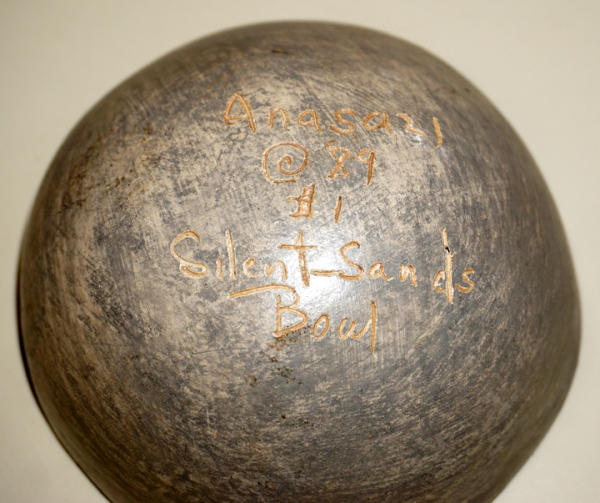 Anasazi
'89
#1
Silent Sands
Bowl